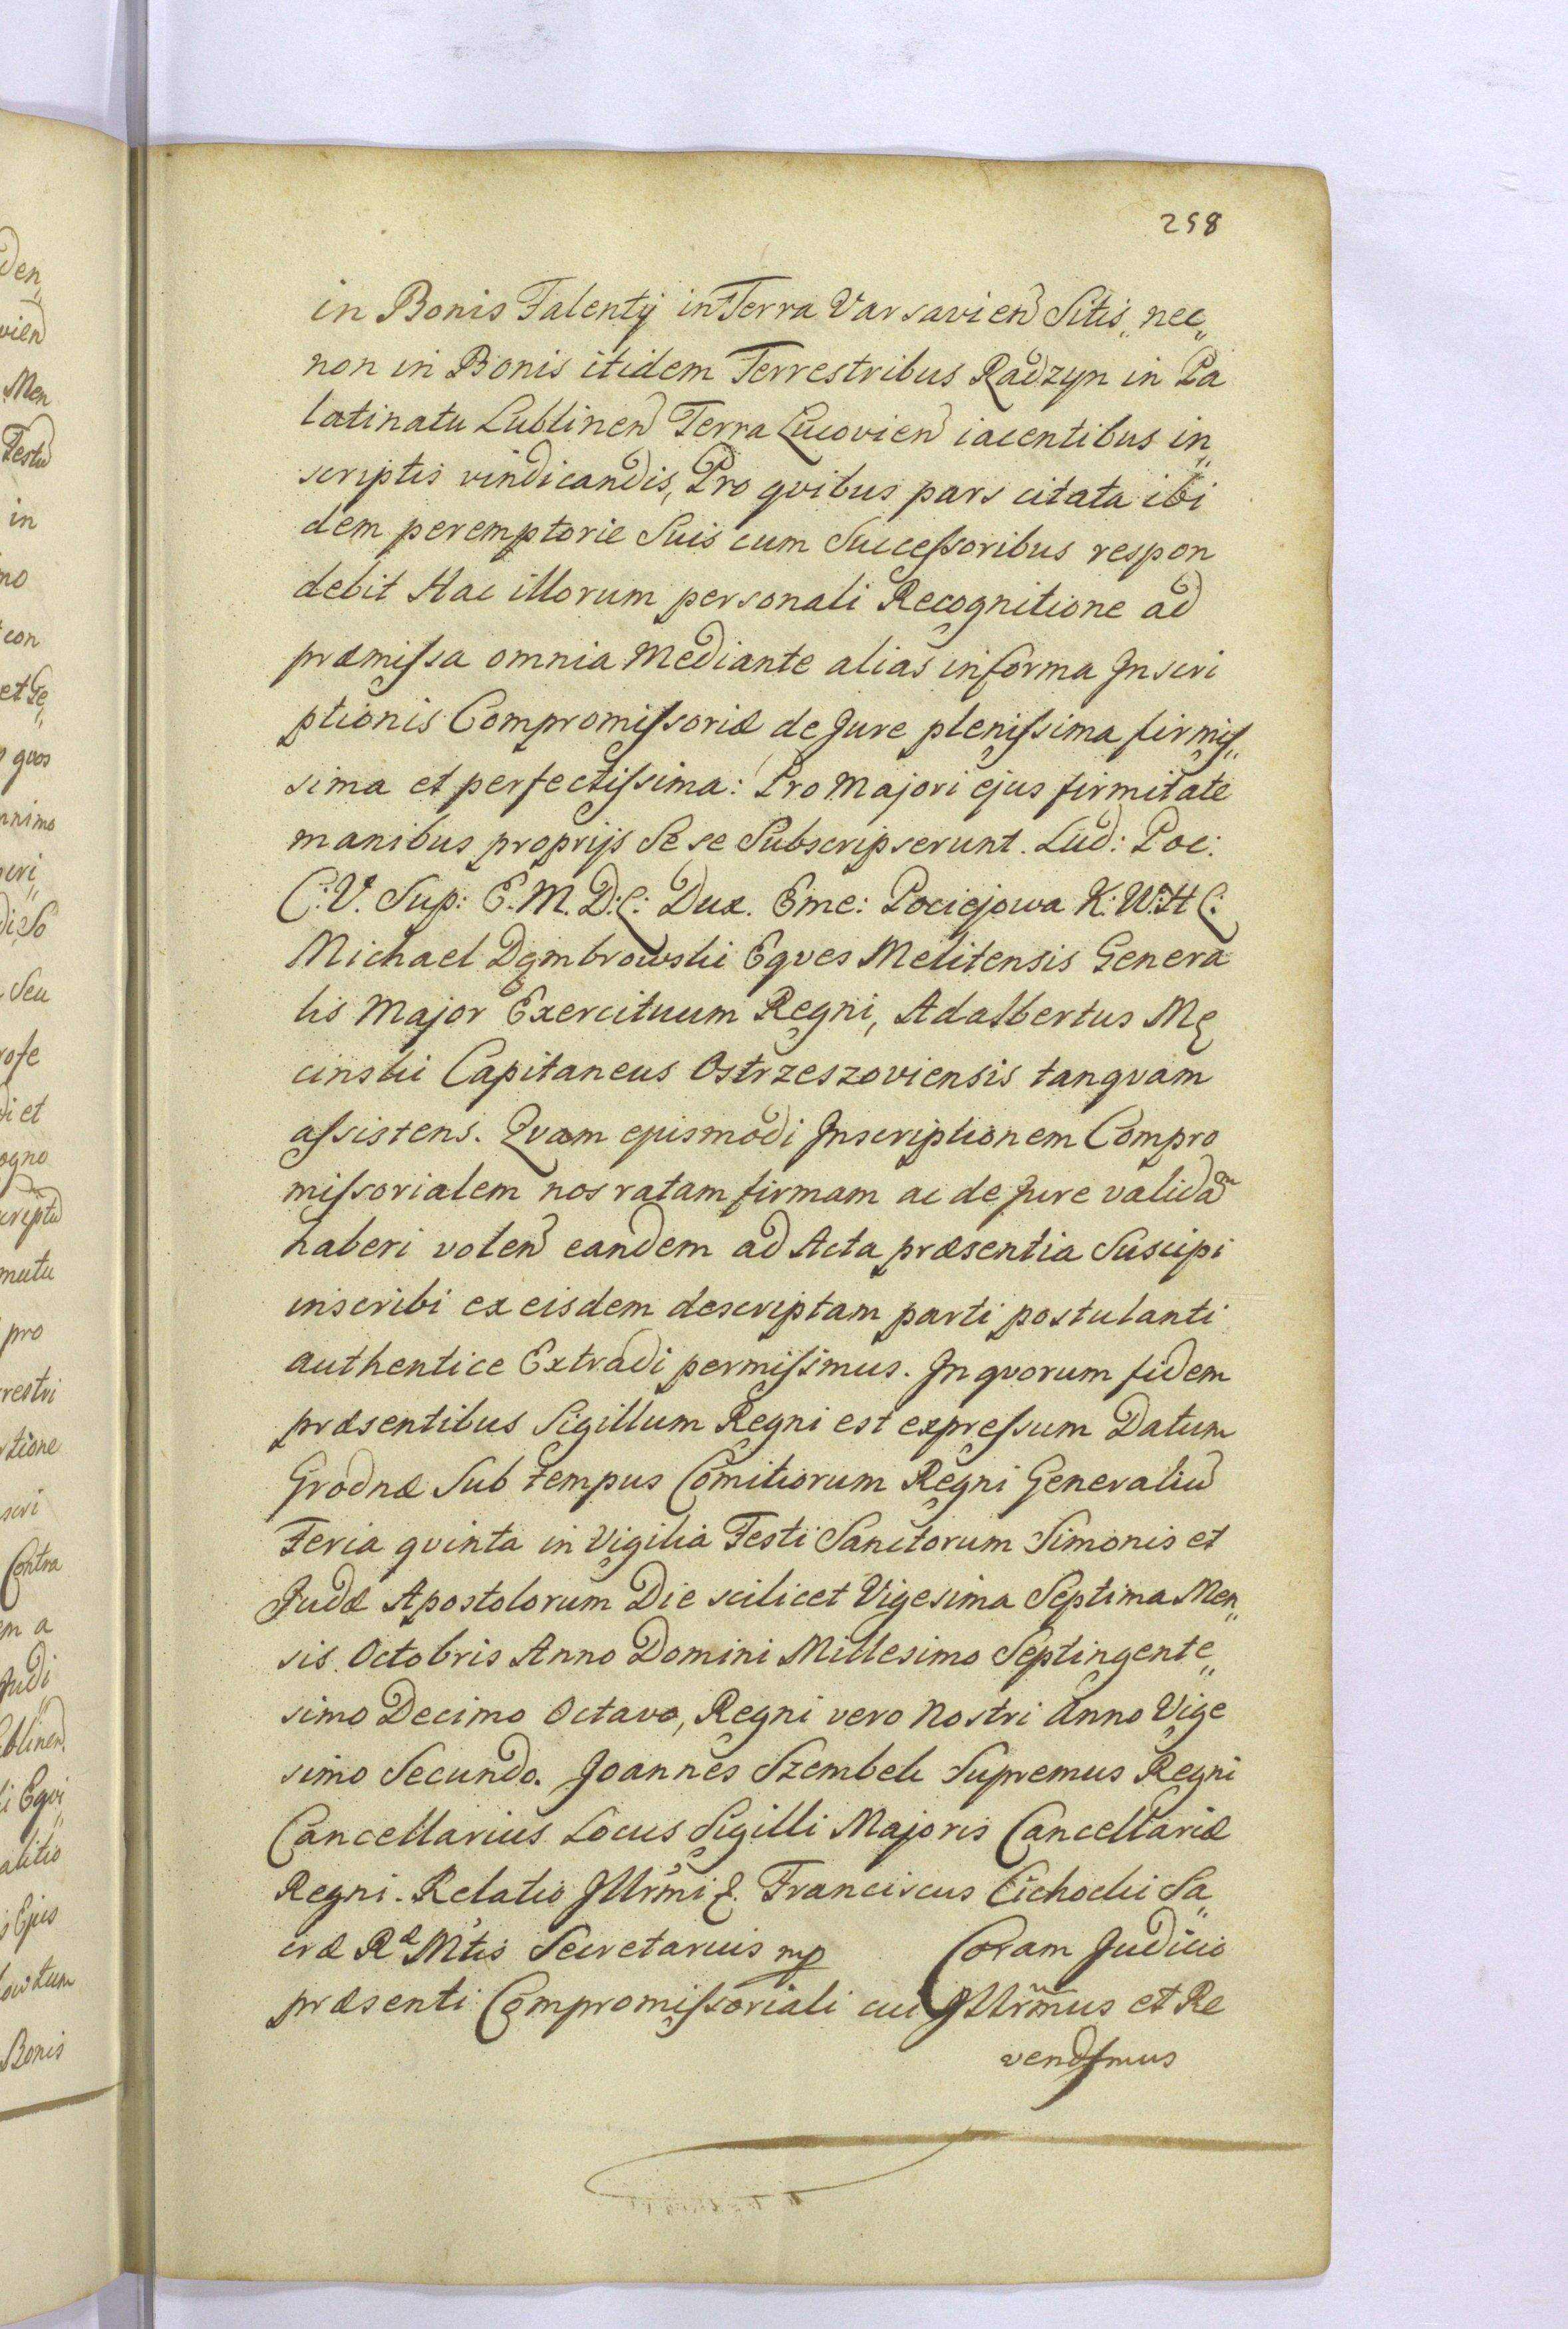 258
in Bonis Falenty in Terra Varsavien Sitis, nec„
non in Bonis itidem Terrestribus Radzyn in Pa
latinatu Lublinen Terra Lucovien iacentibus in„
scriptis vindicandis, Pro qvibus pars citata ibi
dem peremptorie Suis cum Successoribus respon
debit Hac illorum personali Recognitione ad
præmissa omnia Mediante alias in forma Inscri
ptionis Compromissoriæ de Jure plenissima firmis„
sima et perfectissima: Pro Majori ejus firmitate
manibus proprijs Se se Subscripserunt. Lud: Poc:
C:V. Sup: E.M.D:L: Dux. Eme: Pociejowa K:W:H L:
Michael Dęmbrowski Eqves Melitensis Genera
lis Major Exercituum Regni, Adalbertus Mę
cinski Capitaneus Ostrzeszoviensis tanqvam
assistens. Qvam ejusmodi Inscriptionem Compro
missorialem nos ratam firmam ac de Jure validam
haberi volen eandem ad Acta præsentia Suscipi
inscribi ex eisdem descriptam parti postulanti
authentice Extradi permisimus. In qvorum fidem
præsentibus Sigillum Regni est expressum Datum
Grodnæ Sub tempus Comitiorum Regni Generaliu
Feria qvinta in Vigilia Festi Sanctorum Simonis et
Judæ Apostolorum Die scilicet Vigesima Septima Men„
sis Octobris Anno Domini Millesimo Septingente„
simo Decimo Octavo, Regni vero Nostri Anno Vige
simo Secundo. Joannes Szembek Supremus Regni
Cancellarius Locus Sigilli Majoris Cancellariæ
Regni. Relatio Illrmi &. Franciscus Cichocki Sa„
cræ Ræ Mtis Secretarius mp Coram Judicio
præsenti Compromissoriali cui Illrmus et Re
vendsmus

den„
vien
Men
Testu
in
no
con
et Te„
qvos
nnimo
scri„
di So
Seu
ofe
di et
ogno
criptu
mutu
pro
restri
tione
scri
Contra
em a
Judi
blinen
i Eqvi„
alitio
Ejus
tum
Bonis